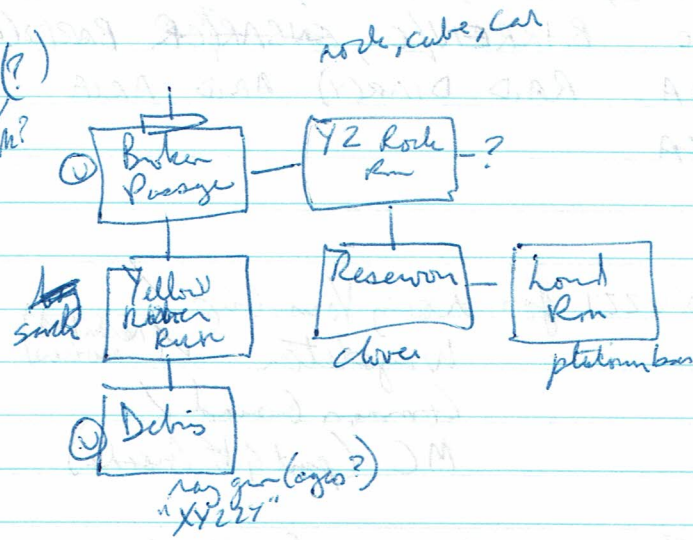 (?)
rock, cube, car
Broken
Passage
U
Y2 Rock
Rm
?
Yellow
Rubber
Room
sack
Reservoir
clover
Loud
Rm
platinum bar
U
Debris
ray gun (
?)
"XYZZY"